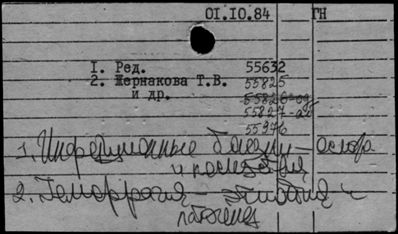 01.10.84 ГН
1. Ред. 55632
2. Жернакова Т.В. 55825
и др. 55826-од
55827-аб
55976
1. Инфекционные болезни - оспа
и
2. Геморрагия - этиология и
патогенез